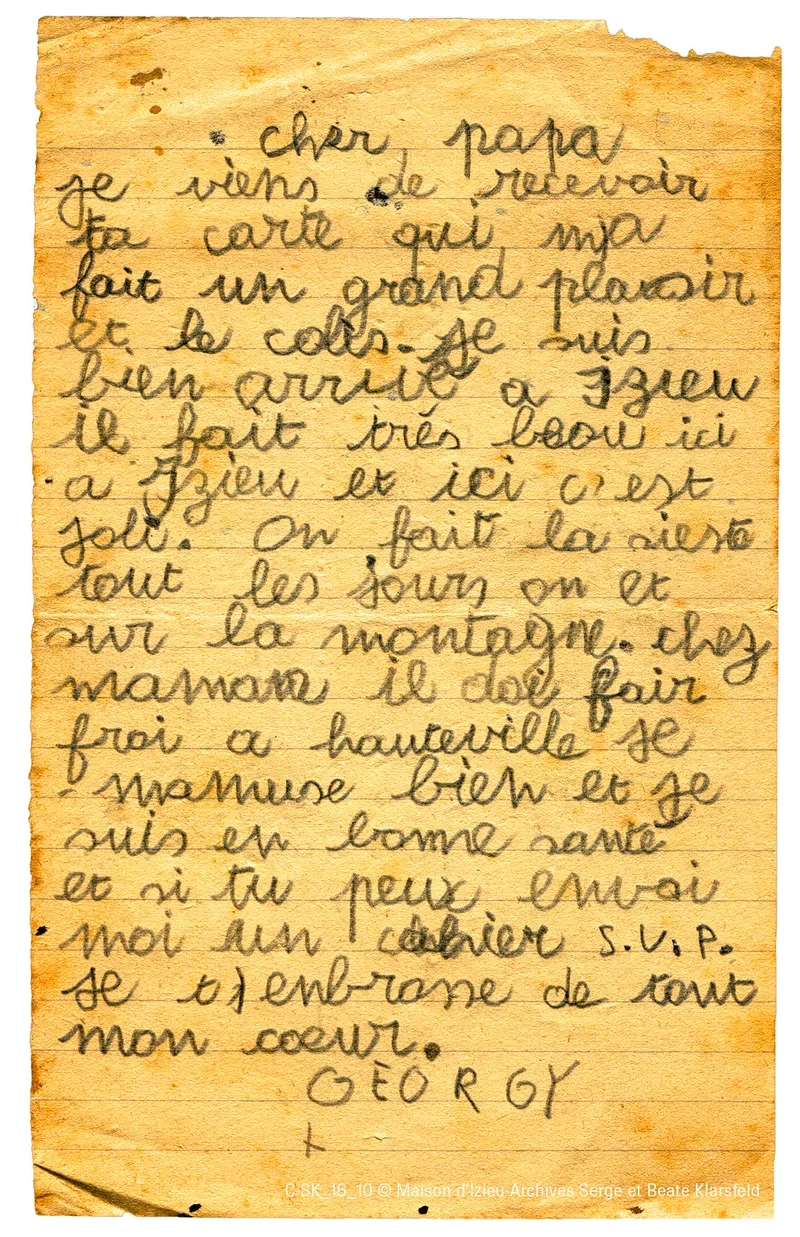 cher papa
je viens de recevoir
ta carte qui m'a
fait un grand plaisir
et le colis. je suis
bien arrivé a Izieu
il fait trés beau ici
a Izieu et ici c'est
joli. On fait la sieste
tout les jours on et
sur la montagne. chez
maman il doi fair
froi a hauteville je
mamuse bien et je
suis en bonne santé
et si tu peux envoi
moi un cahier S.V.P.
je t'enbrasse de tout
mon cœur.
GEORGY
C SK_16_10 © Maison d'Izieu-Archives Serge et Beate Klarsfeld